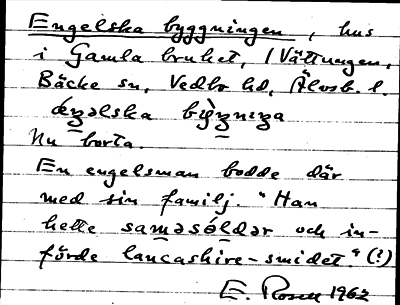 Engelska byggningen, hus
i Gamla bruket, I Vättungen,
Bäcke sn, Vedbo hd, Älvsb. l.
byggniga
Nu borta.
En engelsman bodde där
med sin familj. "Han
hette saməsəldər och in-
förde lancashire-smidet." (?)
E. Rosell 1962